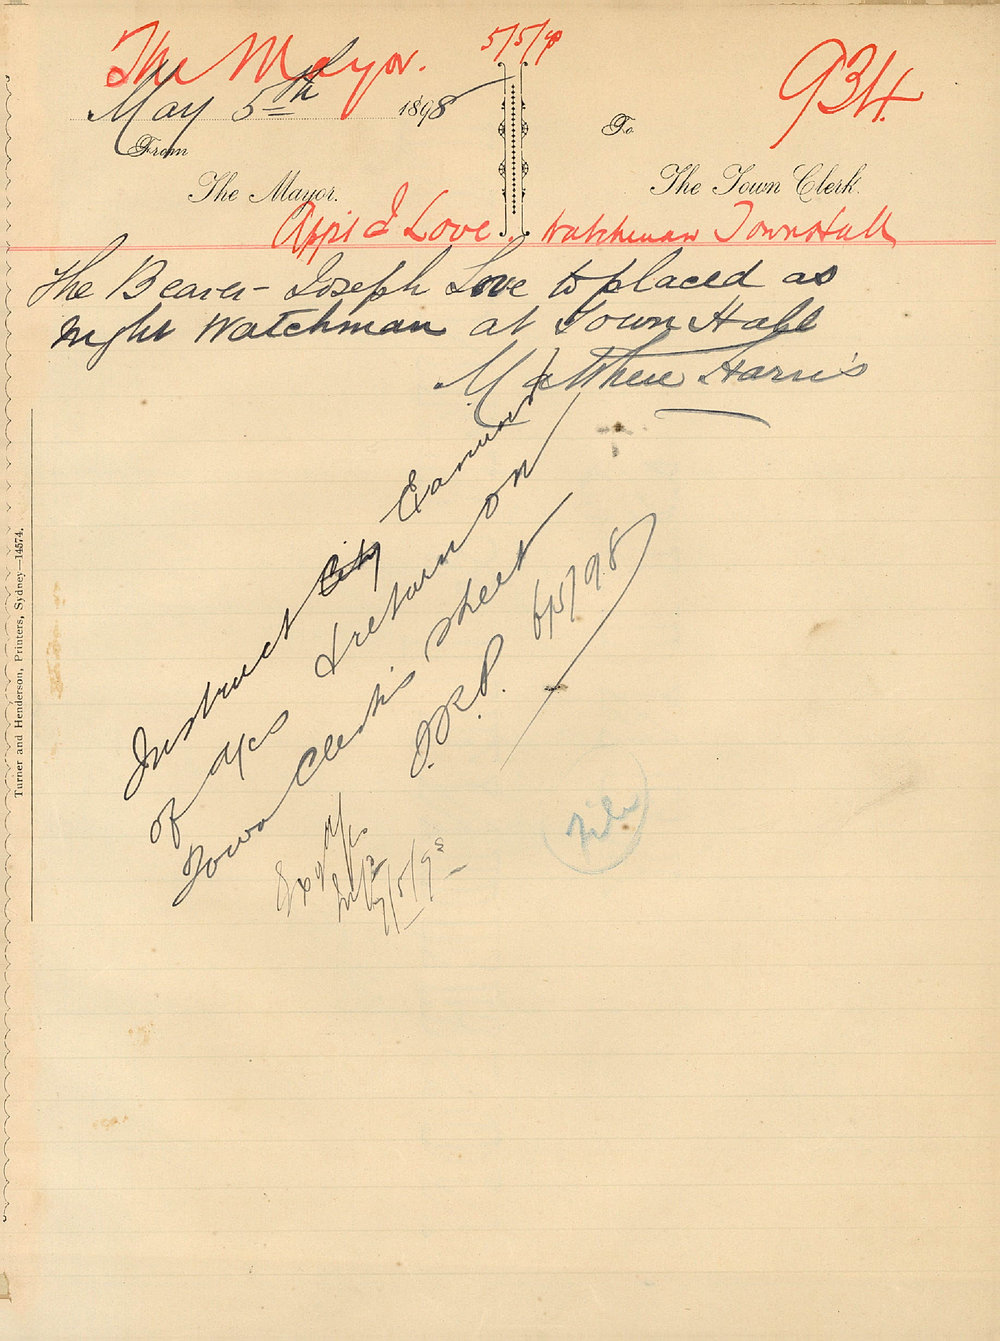 The Mayor.
5/5/98
934.
May 5th 1898
From
The Mayor.
To
The Town Clerk.
App't J Love. Watchman Town Hall
The Bearer - Joseph Love to placed as
night Watchman at Town Hall
Matthew Harris
Instruct City Examiner
of a/cs & return on
Town Clerk's sheet
6/5/98
Ex of a/cs
7/5/98
File
Turner and Henderson, Printers, Sydney—14574.